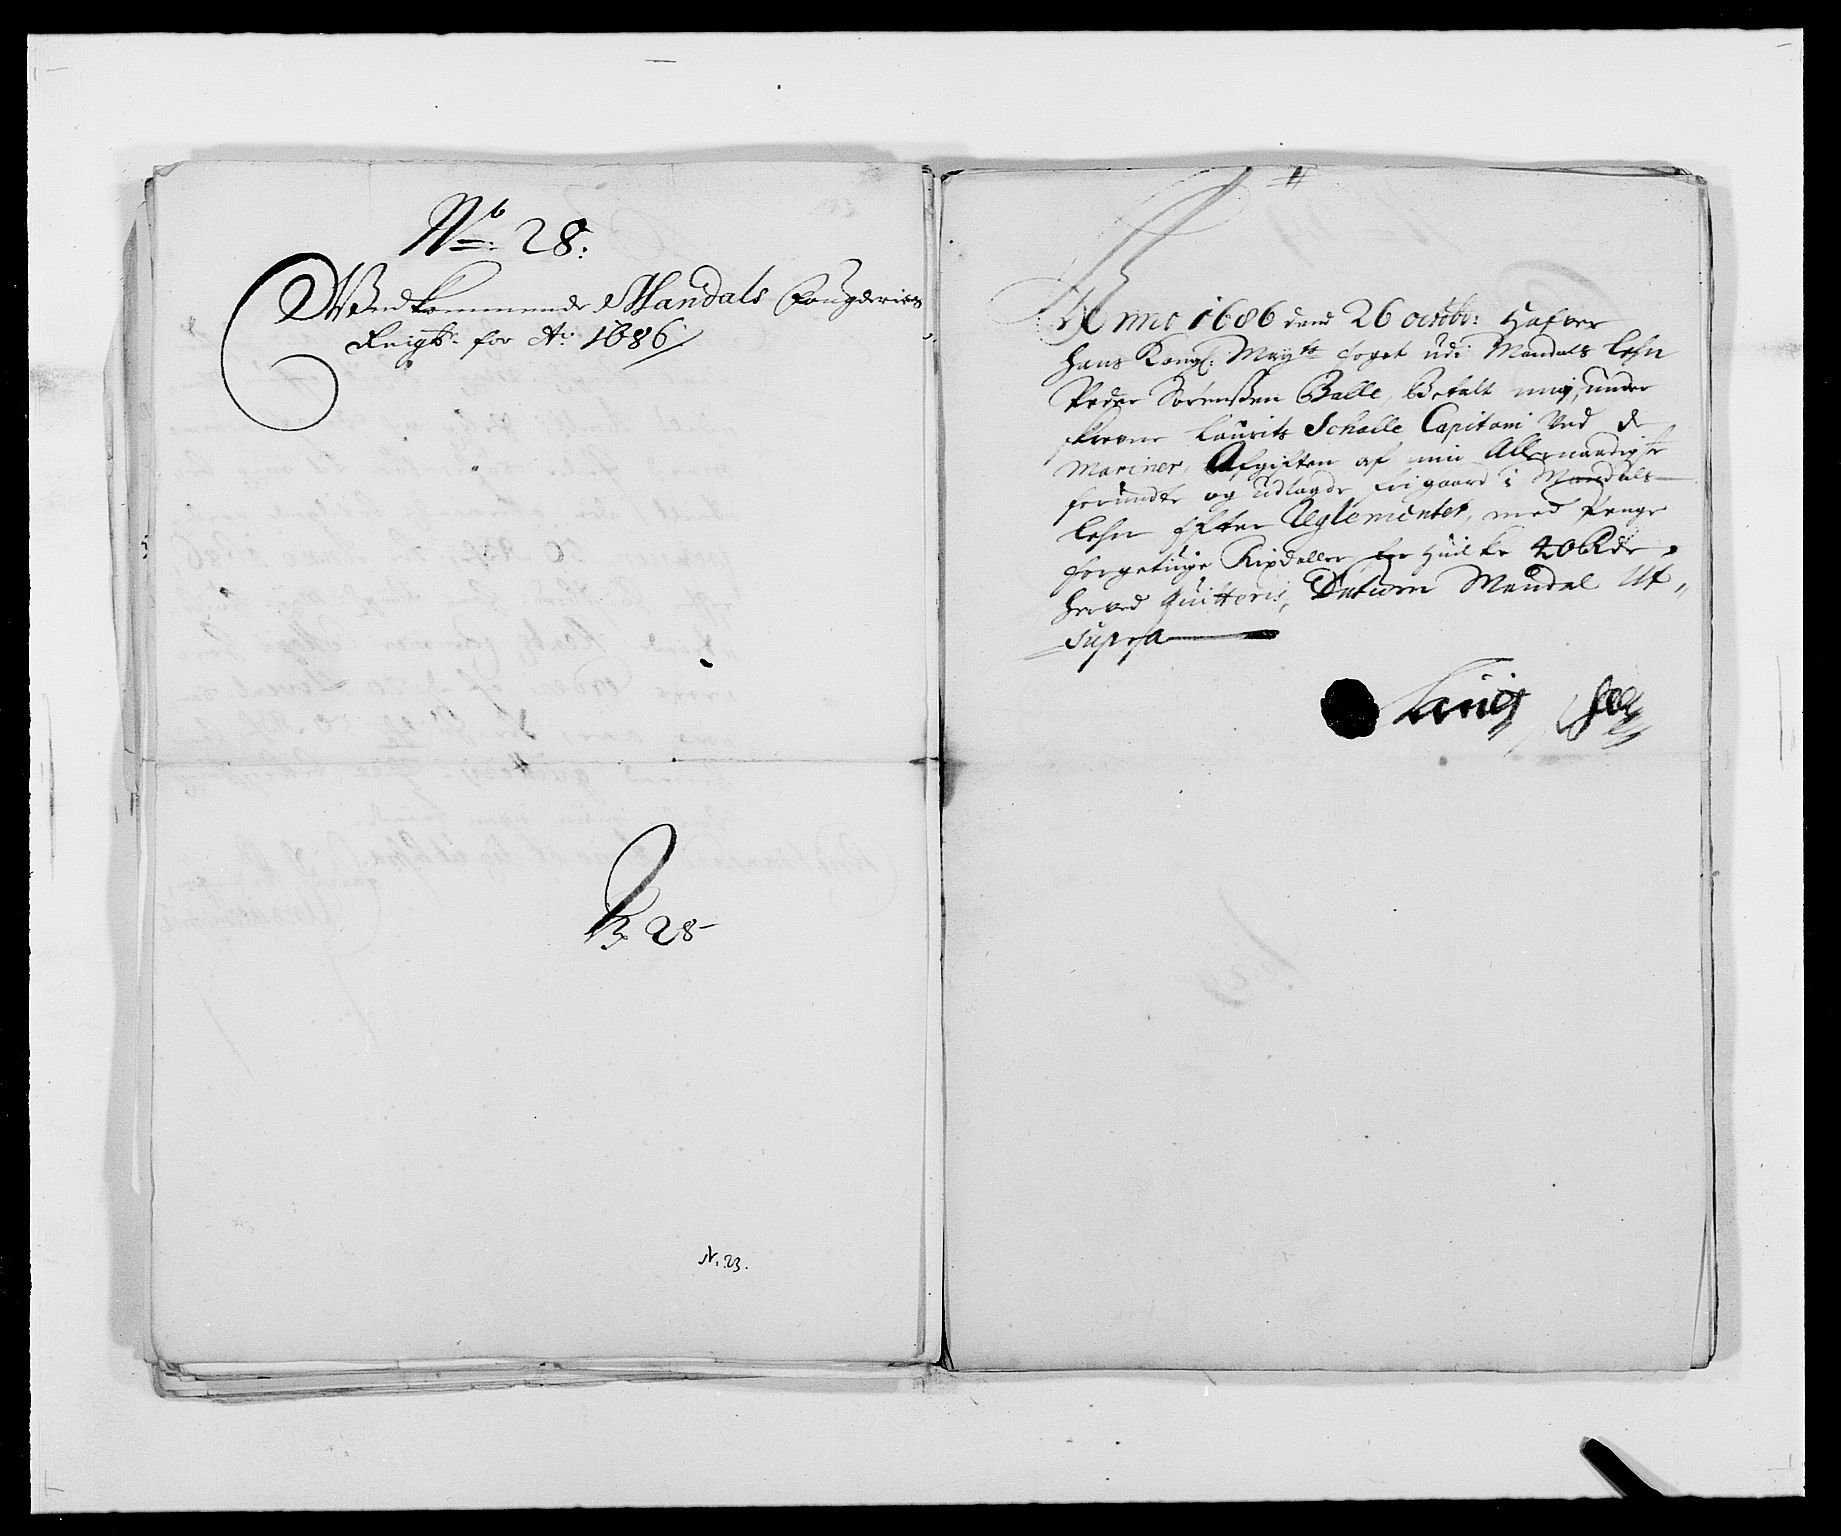 No: 28:
Vedkommende Mandals fougderies
Reigsk: for Ao: 1686
N 28
N. 23.
Anno 1686 dend 26 octobr: Hafver
Hans Kongl: Mayts foget udi Mandals Lehn
Peder Sørenssen Balle, Betalt mig, under
skrefne Laurits Schalle Capitani Ved de
Mariner, Afgiften af min Allernaadigste
forundte og udlagde frigaard i Mandals
Lehn Efter Reglementet, med Penge
förgetiuge Rixdaller for Huilke 40 Rdr
herved Quitteris, Datum Mandal Ut
supra
Laurits